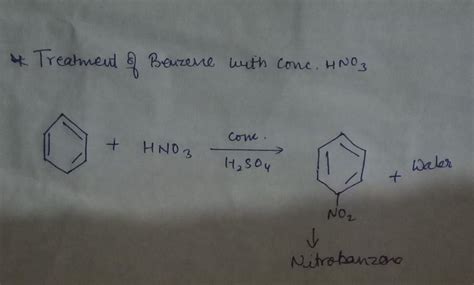 * Treatment of Benzene with conc. HNO3
+ HNO3 conc. H2SO4 + Water
NO2
↓
Nitrobenzene